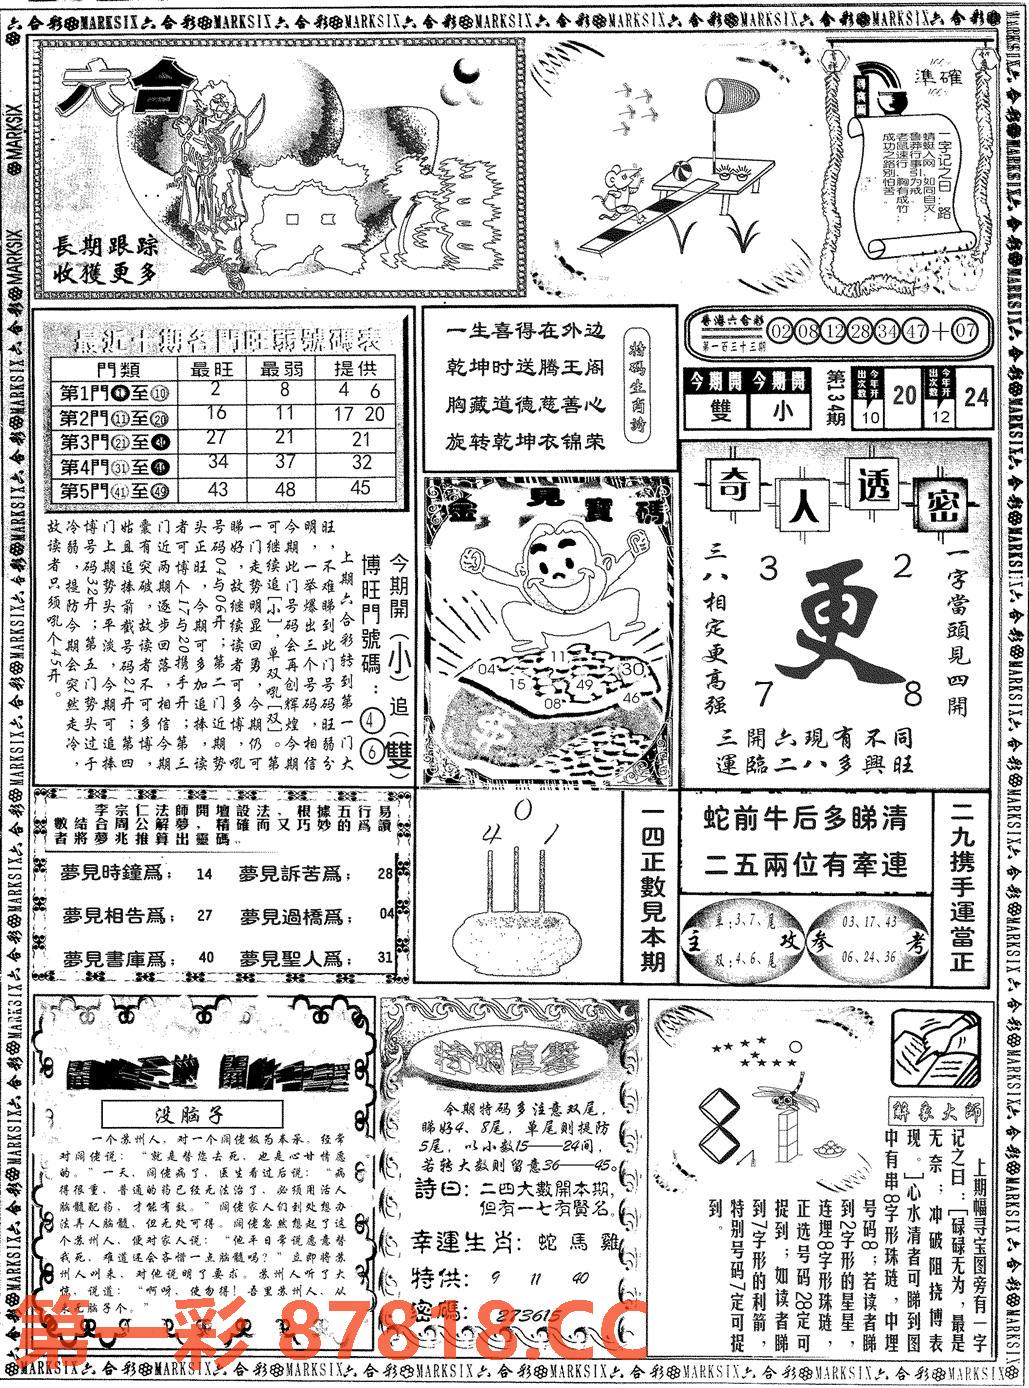 六合
長期跟踪
收獲更多
準確
一字记之曰：路
蜻蜓入网，如同自灭；
鲁莽行事引为戒。
老鼠速行，胸有成竹；
成功之路别怕苦。
最近十期各門旺弱號碼表
門類 最旺 最弱 提供
第1門①至⑩ 2 8 4 6
第2門⑪至⑳ 16 11 17 20
第3門㉑至㉚ 27 21 21
第4門㉛至㊵ 34 37 32
第5門㊶至㊾ 43 48 45
一生喜得在外边
乾坤时送腾王阁
胸藏道德慈善心
旋转乾坤衣锦荣
特码生肖詩
香港六合彩
第一百三十三期
02 08 12 28 34 47 + 07
今期開 雙
今期開 小
第134期
今年开出次数 10 20
今年开出次数 12 24
今期開（小）追（雙）
博旺門號碼：④⑥
上期六合彩转到第一门大
旺，不难睇到此门号码旺弱分
明，一举爆出三个号码，相信
今期此门号码会再创辉煌。今期
可继续追[小]，单双吼[双]。第
一门走势明显回勇，今期仍可
睇好，故继续读者可多博，吼
号码04与06开；第二门近期势
头正旺，今期可多加追捧，读
者可博个17与20携手开；第三
门近两期逐步回落，相信今期
囊有突破，故读者不可多博，
姑且追捧前截号码21开；第四
门上期头平淡，今期可追第
博号码32开；第五门势头过于
冷弱，提防今期会突然走冷，
故读者只须吼个45开。
金見寶碼
11
04
15
49
30
08
46
奇人透密
一字當頭見四開
三八相定更高强
3 2
更
7 8
三開六現有不同
運臨二八多興旺
李宗仁法師開壇設法，根據五行易
數結合周公解夢，精確而又巧妙的爲讀
者將夢兆推算出靈碼。
夢見時鐘爲； 14 夢見訴苦爲； 28
夢見相告爲； 27 夢見過橋爲； 04
夢見書庫爲； 40 夢見聖人爲； 31
4 0 1
一四正數見本期
蛇前牛后多睇清
二五兩位有牽連
主攻
单：3、7、尾
双：4、6、尾
参考
03、17、43
06、24、36
二九携手運當正
没脑子
一个苏州人，对一个阔佬极为奉承。经常
对阔佬说：“就是替您去死，也是心甘情愿
的。”一天，阔佬病了，医生看过后说：“病
得很重，普通的药已经无法治了，必须用活人
脑髓配药，才能有效。”阔佬家人们到处想办
法弄人脑髓，但无处可得。阔佬忽然想起了这
个苏州人，便对家人说：“他平日常说愿意替
我死，难道还会吝惜一点脑髓吗？”立即将苏
州人叫来，对他说明了要求。苏州人听了大
惊，说道：“啊呀，使勿得！吾里苏州人，从
来无脑子个。”
特碼直擊
今期特码多注意双尾，
睇好4、8尾，单尾则提防
5尾，以小数15——24间，
若转大数则留意36——45。
詩曰：二四大數開本期，
但有一七有賢名。
幸運生肖：蛇馬雞
特供： 9 11 40
密碼： 273615
解彖大師
上期幅寻宝图旁有一字
记之曰：[碌碌无为，最是
无奈；冲破阻挠博表
现。]心水清者可睇到图
中有串8字形珠琏，中埋
号码8；若读者睇
到2字形的星星，
连埋8字形珠琏，
正选号码28定可
捉到；如读者睇
到7字形的利箭，
特别号码7定可捉
到。
第一彩 87818.CC